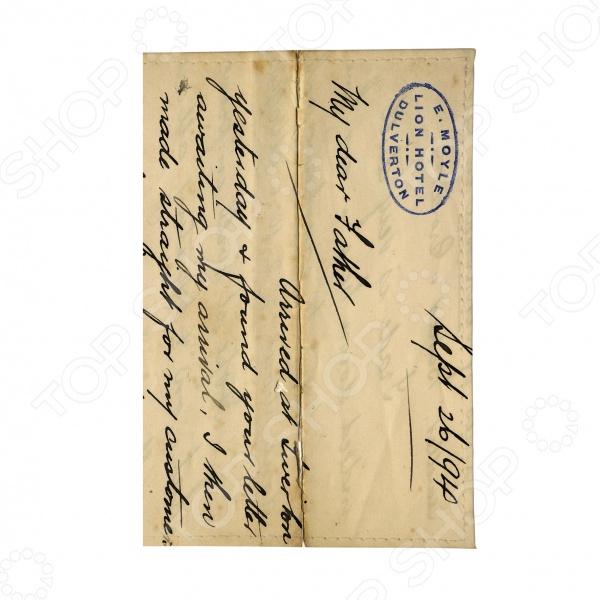 E. MOYLE
LION HOTEL
DULVERTON
Sept 26/94
My dear Father
Arrived at Tiverton
yesterday & found your letter
awaiting my arrival, I then
made straight for my custome
TOP SHOP